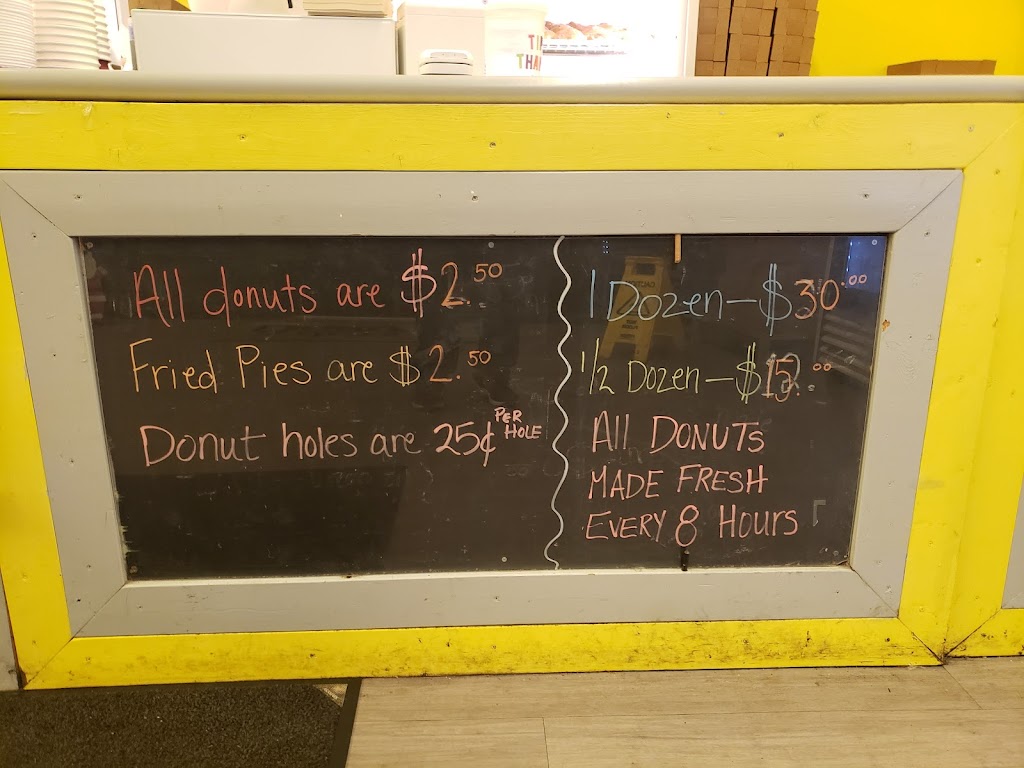 All donuts are $2.50
Fried Pies are $2.50
Donut holes are 25¢ PER HOLE
1 Dozen - $30.00
1/2 Dozen - $15.00
All DONUTS
MADE FRESH
EVERY 8 HOURS